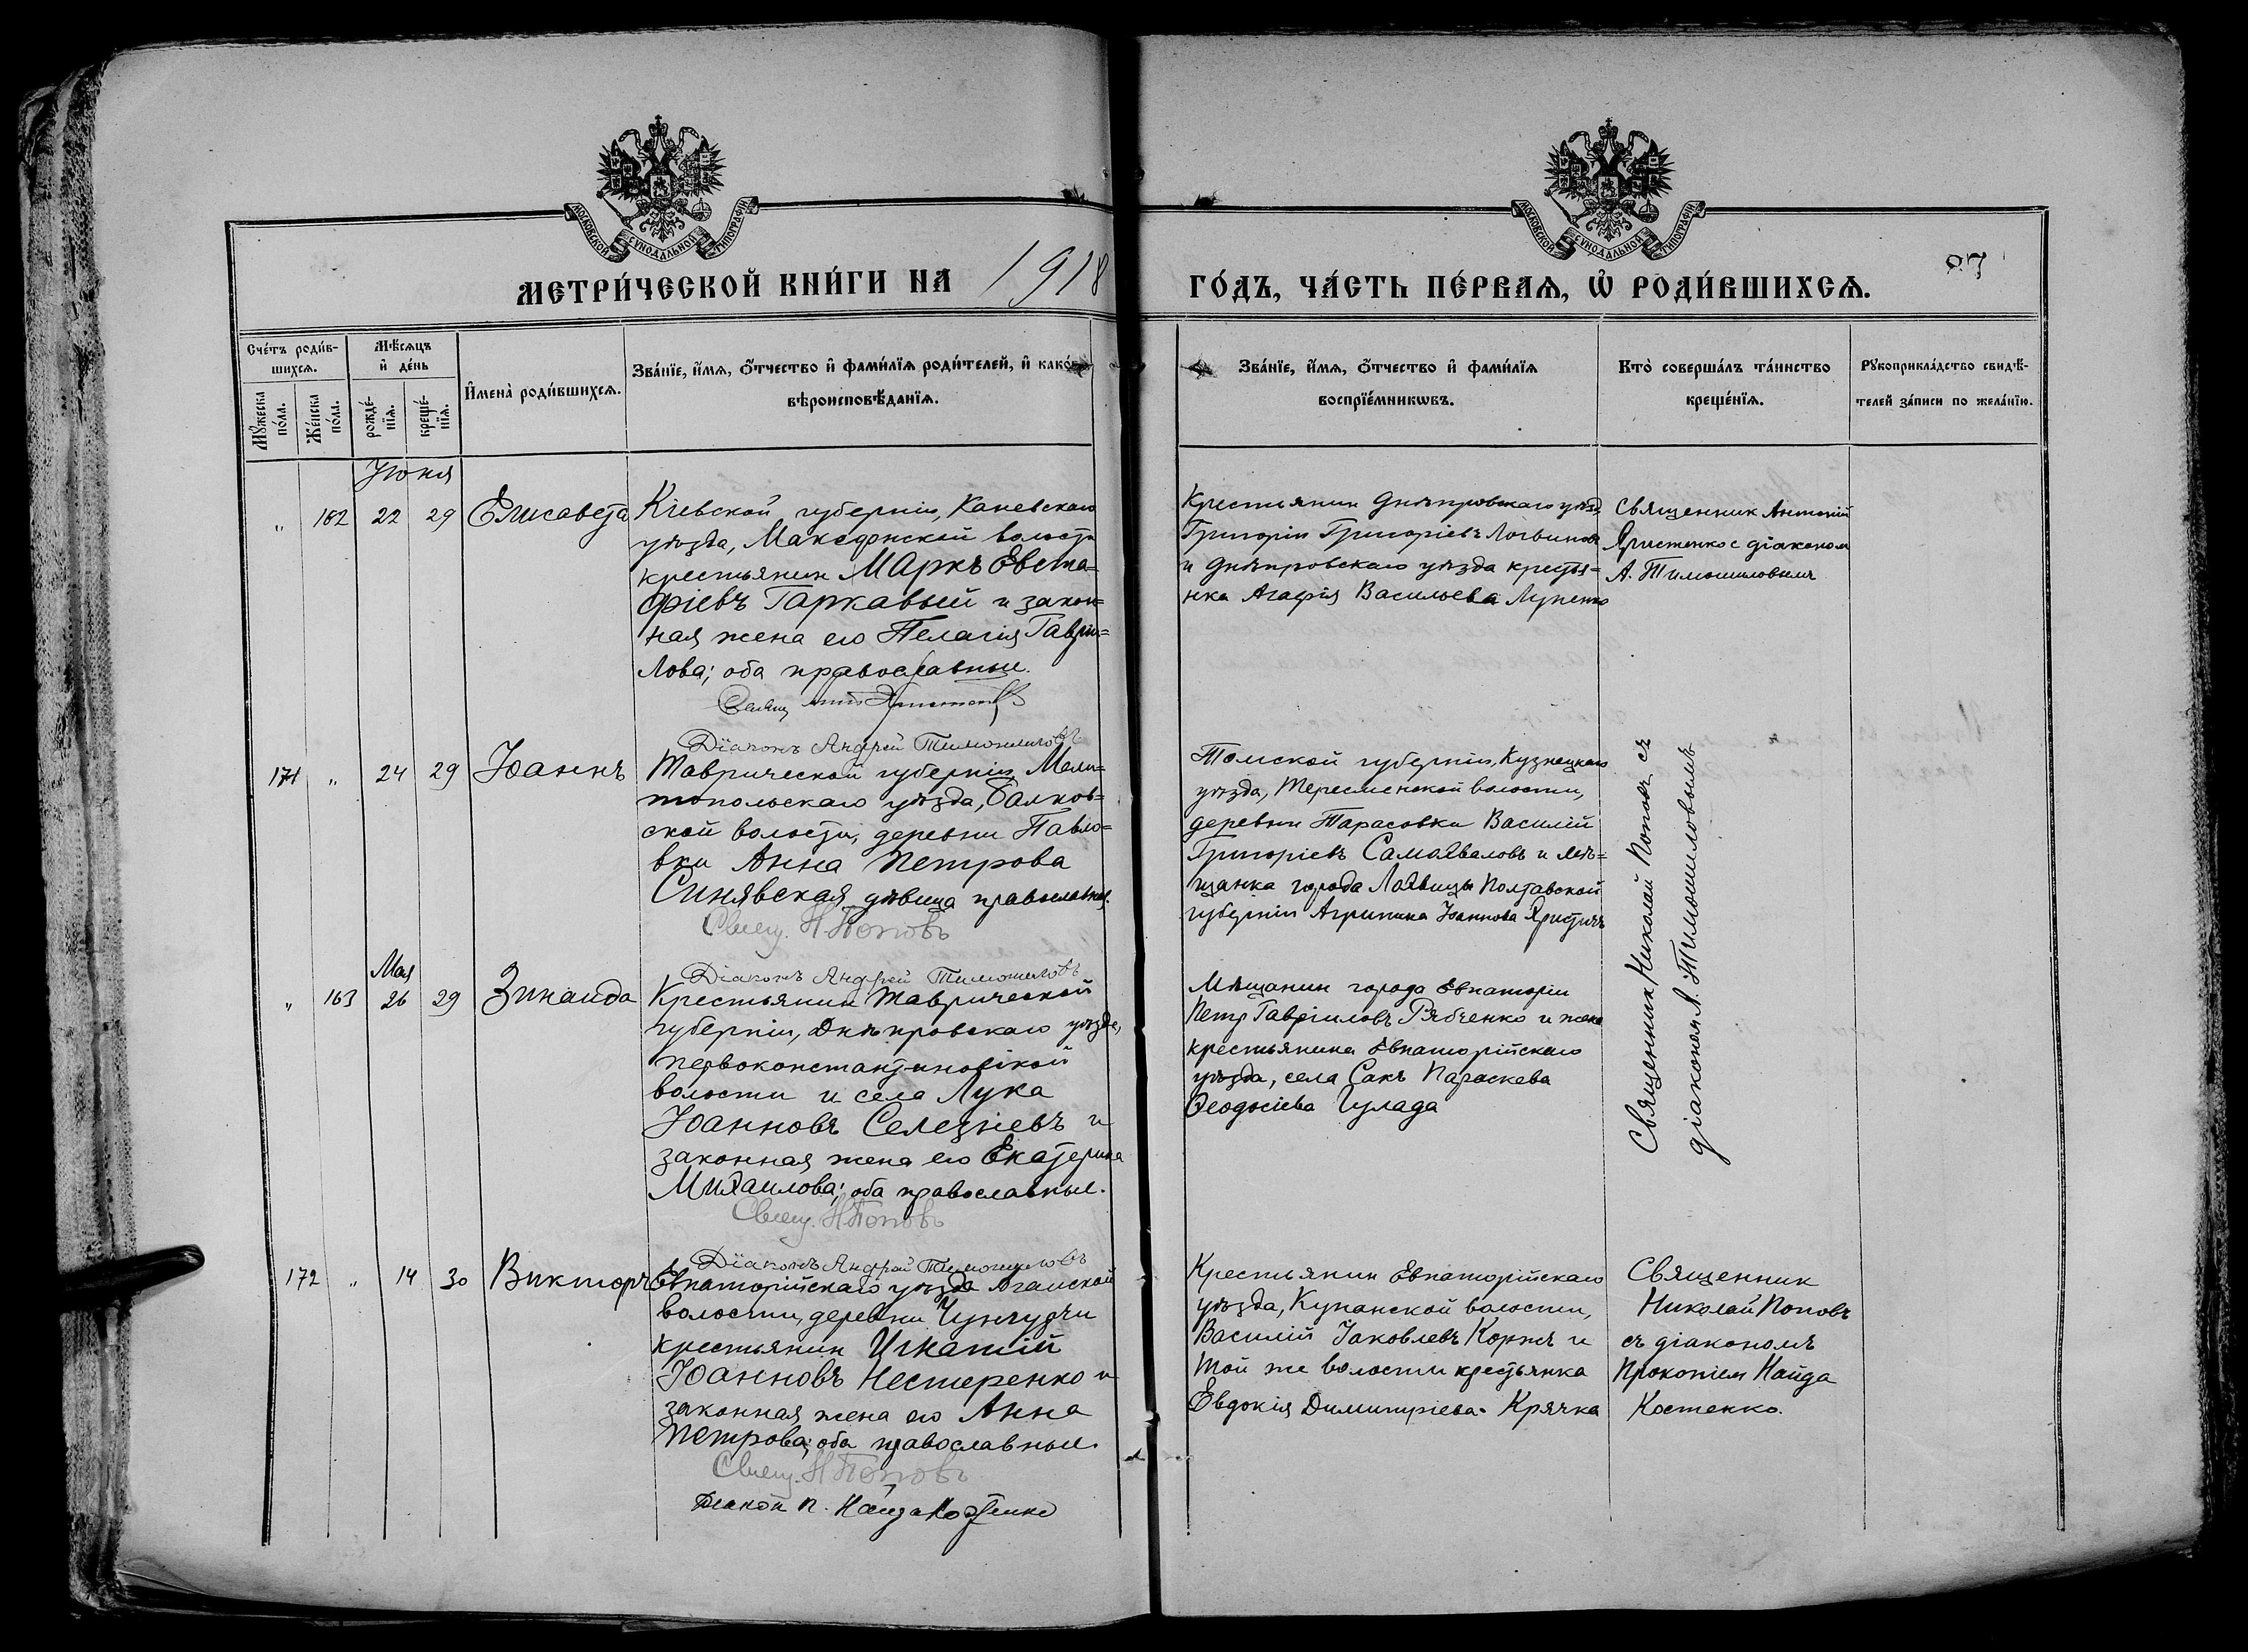 МОСКОВСКОЙ СУНОДАЛЬНОЙ ТИПОГРАФІИ
МОСКОВСКОЙ СУНОДАЛЬНОЙ ТИПОГРАФІИ
МЕТРИ́ЧЕСКОЙ КНИ́ГИ НА 1918
ГО́ДЪ, ЧА́СТЬ ПЕ́РВАѦ, Ѽ РОДИ́ВШИХСѦ.
Сче́тъ роди́в-
шихсѧ.
Мꙋжеска по́ла.
Же́нска по́ла.
Мѣ́сѧцъ
и҆ де́нь
рожде́-
нїѧ.
креще́-
нїѧ.
И҆мена̀ роди́вшихсѧ.
Зва́нїе, и҆́мѧ, ѻ҆́тчество и҆ фами́лїѧ роди́телей, и҆ како́го
вѣроисповѣ́данїѧ.
Зва́нїе, и҆́мѧ, ѻ҆́тчество и҆ фами́лїѧ
воспрїе́мникѡвъ.
Кто̀ соверша́лъ та́инство
креще́нїѧ.
Рꙋкоприкла́дство свидѣ́-
телей за́писи по жела́нїю.
Іюня
" 162 22 29 Елисавета
Кіевской губерніи, Каневскаго
уѣзда, Македонской волости
крестьянин Маркъ Евста=
фіевъ Гаркавый и закон=
ная жена его Пелагія Гаврiи=
лова; оба православные.
Діаконъ Андрей Тимошиловъ
Крестьянин Днѣпровскаго уѣзд.
Григорій Григоріевъ Логвинов
и Днѣпровскаго уѣзда крестья=
нка Агафія Васильева Лупенко
Священник Антоній
Христенко с діаконом
А. Тимошиловым
171 " 24 29 Іоаннъ
Таврической губерніи, Мели=
топольскаго уѣзда, Балков=
ской волости, деревни Павло=
вки Анна Петрова
Синявская дѣвица православная.
Свящ. Н. Поповъ
Діаконъ Андрей Тимошиловъ
Томской губерніи, Кузнецкаго
уѣзда, волости,
деревни Тарасовки Василій
Григоріевъ Самохваловъ и мѣ=
щанка города Лохвицы Полтавской
губерніи Агрипина Іоаннова
Священник Николай Поповъ съ
діаконом А. Тимошиловымъ
Мая
" 163 26 29 Зинаида
Крестьянин Таврической
губерніи, Днѣпровскаго уѣзда,
Первоконстантиновской
волости и села Лука
Іоанновъ Селезневъ и
законная жена его Екатерина
Михаилова; оба православные.
Свящ. Н. Поповъ
Діаконъ Андрей Тимошиловъ
Мѣщанин города Евпаторіи
Петр Гавріиловъ Рябченко и жена
крестьянина Евпаторійскаго
уѣзда, села Сакъ Параскева
Ѳеодосіева Гулада
172 " 14 30 Викторъ
Евпаторійскаго уѣзда Агайской
волости, деревни Чунгурчи
крестьянин Игнатій
Іоанновъ Нестеренко и
законная жена его Анна
Петрова; оба православные.
Свящ. Н. Поповъ
Діакон П. Найда Костенко
Крестьянин Евпаторійскаго
уѣзда, Кунанской волости,
Василій Іаковлевъ Коржъ и
той же волости крестьянка
Евдокія Димитріева Крячка
Священник
Николай Поповъ
съ діакономъ
Прокопіем Найда
Костенко.